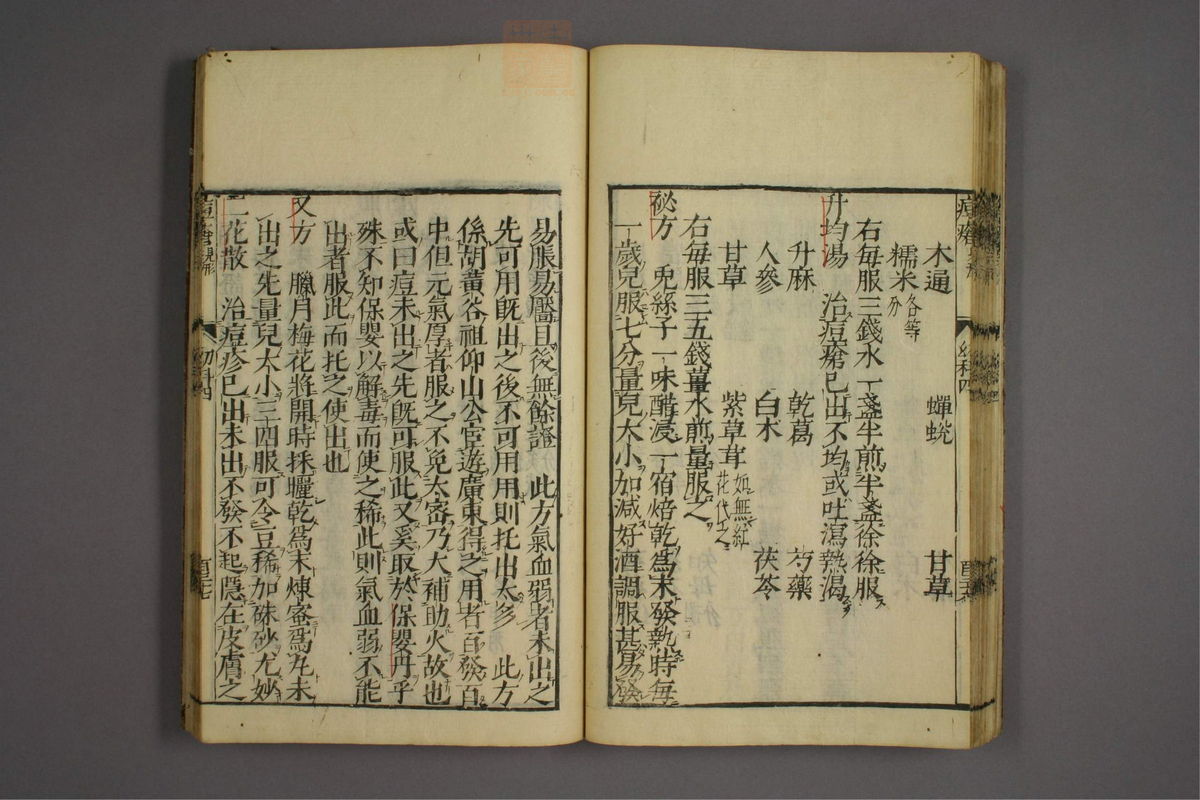 木通　蟬蛻　甘草
糯米各等分
右每服三錢水一盞半煎半盞徐徐服
升均湯　治痘瘡已出不均或吐瀉熱渴
升麻　乾葛　芍藥
人參　白朮　茯苓
甘草　紫草茸如無紅花代之
右每服三五錢薑水煎量服之
秘方　兔絲子一味醋浸一宿焙乾爲末發熱時每
一歲兒服七分量兒大小加減好酒調服甚易發
易脹易靨且後無餘證　此方氣血弱者未出之
先可用旣出之後不可用用則托出太多　此方
係胡黃谷祖仰山公宦遊廣東得之用者百發百
中但元氣厚者服之不免太密乃大補助火故也
或曰痘未出之先旣可服此又奚取於保嬰丹乎
殊不知保嬰以解毒而使之稀此則氣血弱不能
出者服此而托之使出也
又方　臘月梅花將開時採曬乾爲末煉蜜爲丸未
出之先量兒大小三四服可令豆稀加硃砂尤妙
花散　治痘疹已出未出不發不起隱在皮膚之
幼科四